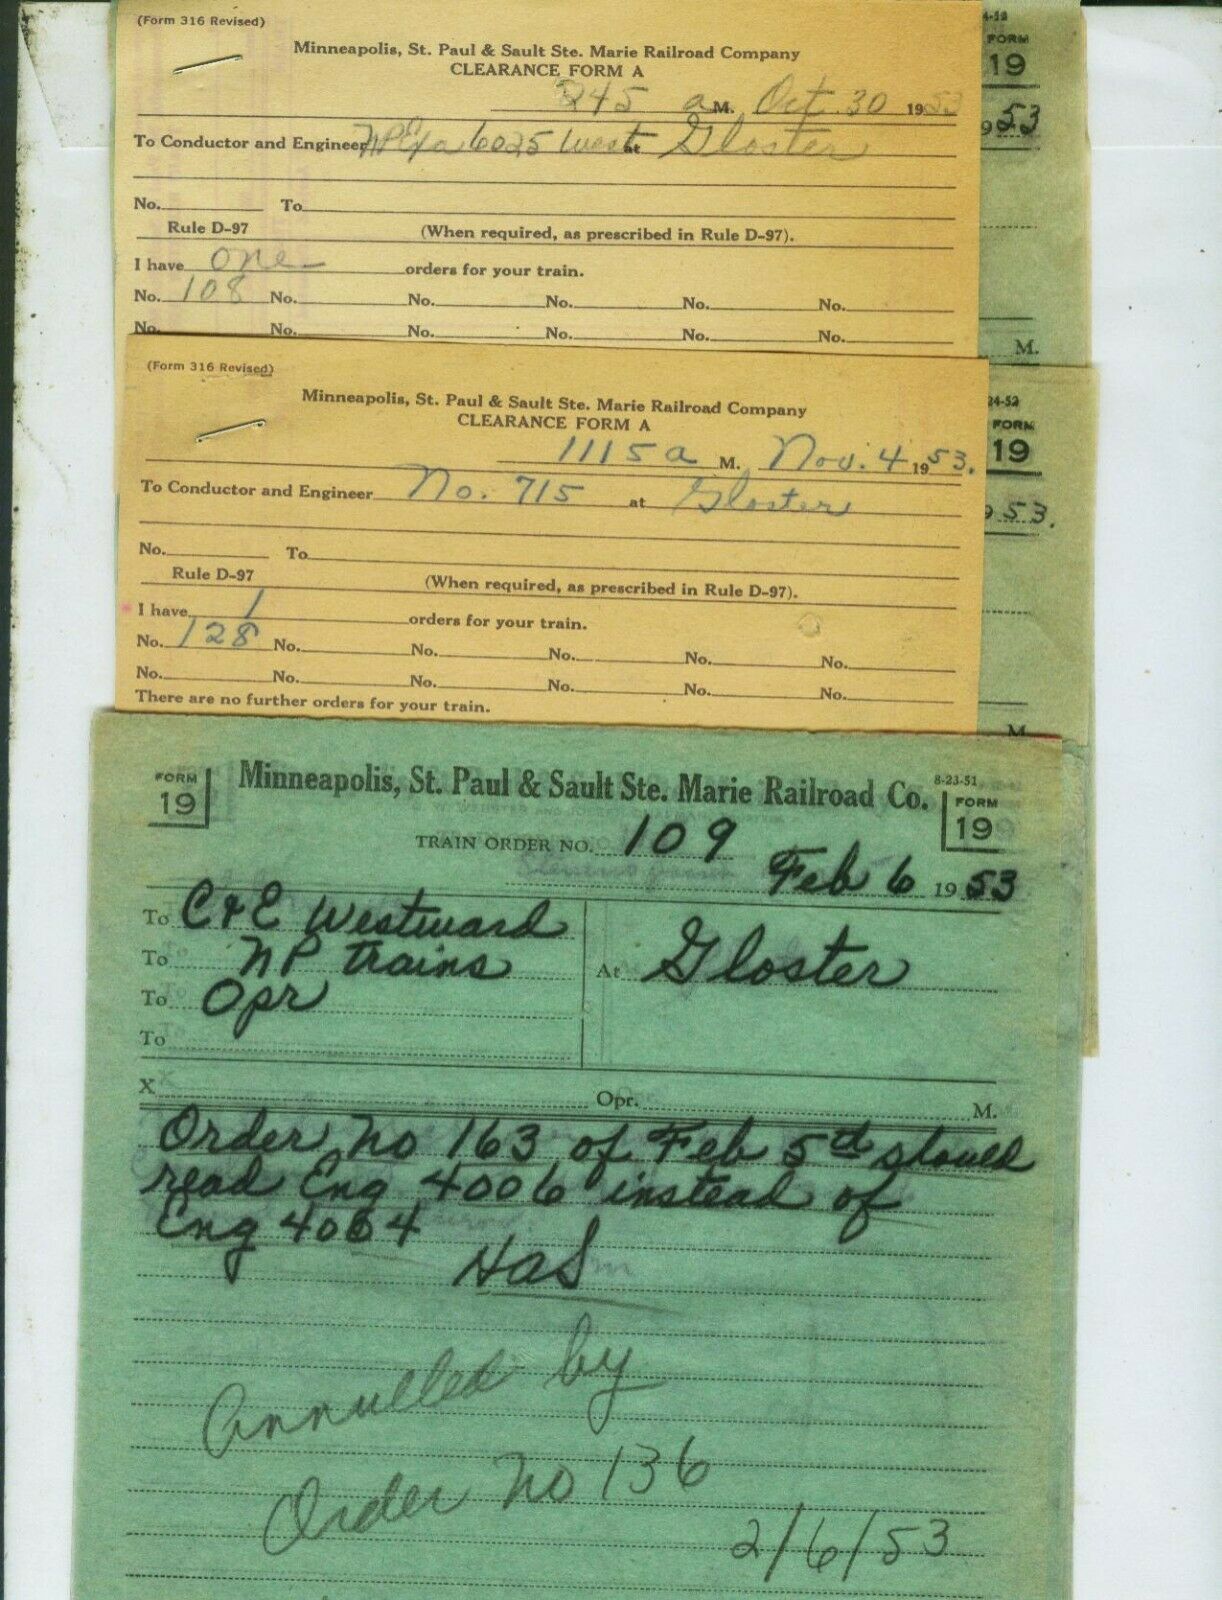 (Form 316 Revised)
Minneapolis, St. Paul & Sault Ste. Marie Railroad Company
CLEARANCE FORM A
245 a M. Oct. 30 1953
To Conductor and Engineer NP Exa 6025 West at Gloster
No. To
Rule D-97 (When required, as prescribed in Rule D-97).
I have one orders for your train.
No. 108 No. No. No. No. No.
No. No. No. No. No. No.
4-52
FORM
19
953
M.
(Form 316 Revised)
Minneapolis, St. Paul & Sault Ste. Marie Railroad Company
CLEARANCE FORM A
1115 a M. Nov. 4 1953.
To Conductor and Engineer No. 715 at Gloster
No. To
Rule D-97 (When required, as prescribed in Rule D-97).
I have 1 orders for your train.
No. 128 No. No. No. No. No.
No. No. No. No. No. No.
There are no further orders for your train.
24-52
FORM
19
953.
M
FORM 19 Minneapolis, St. Paul & Sault Ste. Marie Railroad Co. 8-23-51 FORM 19
TRAIN ORDER NO. 109
Feb 6 1953
To C&E Westward
To NP trains At Gloster
To Opr
To
X Opr. M.
Order No 163 of Feb 5th should
read Eng 4006 instead of
Eng 4064
HAS
Annulled by
Order No 136
2/6/53